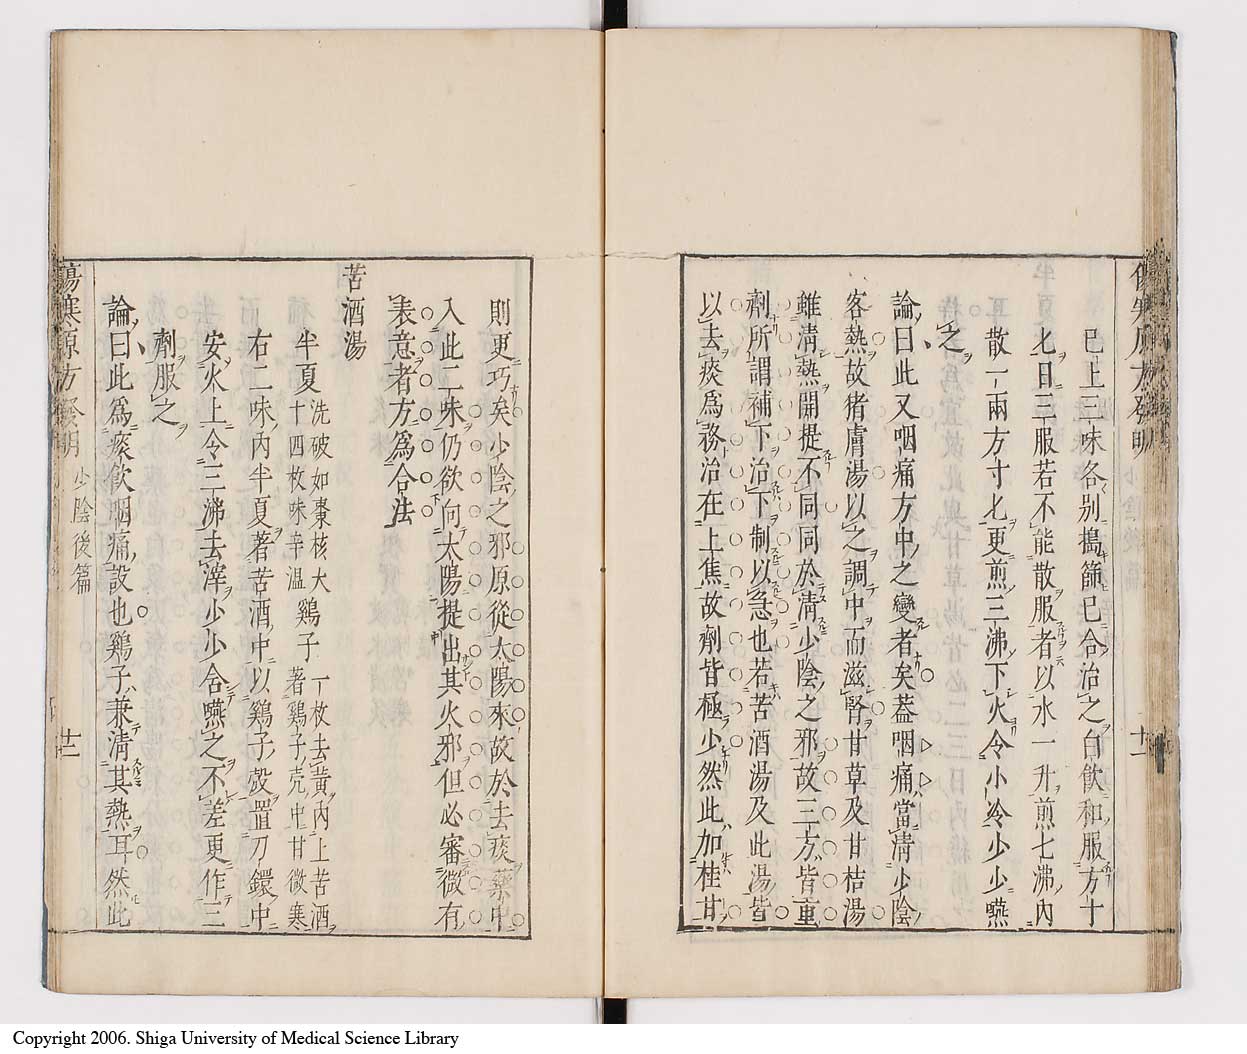 已上三味各別搗篩已合治之白飮和服方十
匕日三服若不能散服者以水一升煎七沸內
散一兩方寸匕更煎三沸下火令小冷少少嚥
之
論曰此又咽痛方中之變者矣葢咽痛當淸少陰
客熱故猪膚湯以之調中而滋腎甘草及甘桔湯
雖淸熱開提不同同於淸少陰之邪故三方皆重
劑所謂補下治下制以急也若苦酒湯及此湯皆
以去痰爲務治在上焦故劑皆極少然此加桂甘
則更巧矣少陰之邪原從太陽來故於去痰藥中
入此二味仍欲向太陽提出其火邪但必審微有
表意者方爲合法
苦酒湯
半夏洗破如棗核大十四枚味辛溫 鷄子一枚去黃內上苦酒著鷄子壳中甘微寒
右二味內半夏著苦酒中以鷄子殼置刀鐶中
安火上令三沸去滓少少含嚥之不差更作三
劑服之
論曰此爲痰飮咽痛設也鷄子兼淸其熱耳然此
傷寒原方發明 少陰後篇 廿二
Copyright 2006. Shiga University of Medical Science Library